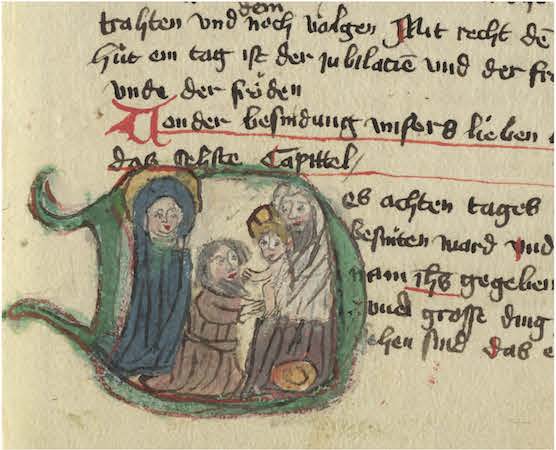 dem
trahten vnd noch volgen Mit recht de
hüt ein tag ist der jubilacie vnd der fr
vnde der fröden
Von der besnidung vnsers lieben
das sehste Capittel
es achten tages
besniten ward vnd
nam ihs gegeben
vnd grosse ding
sehen sind das e